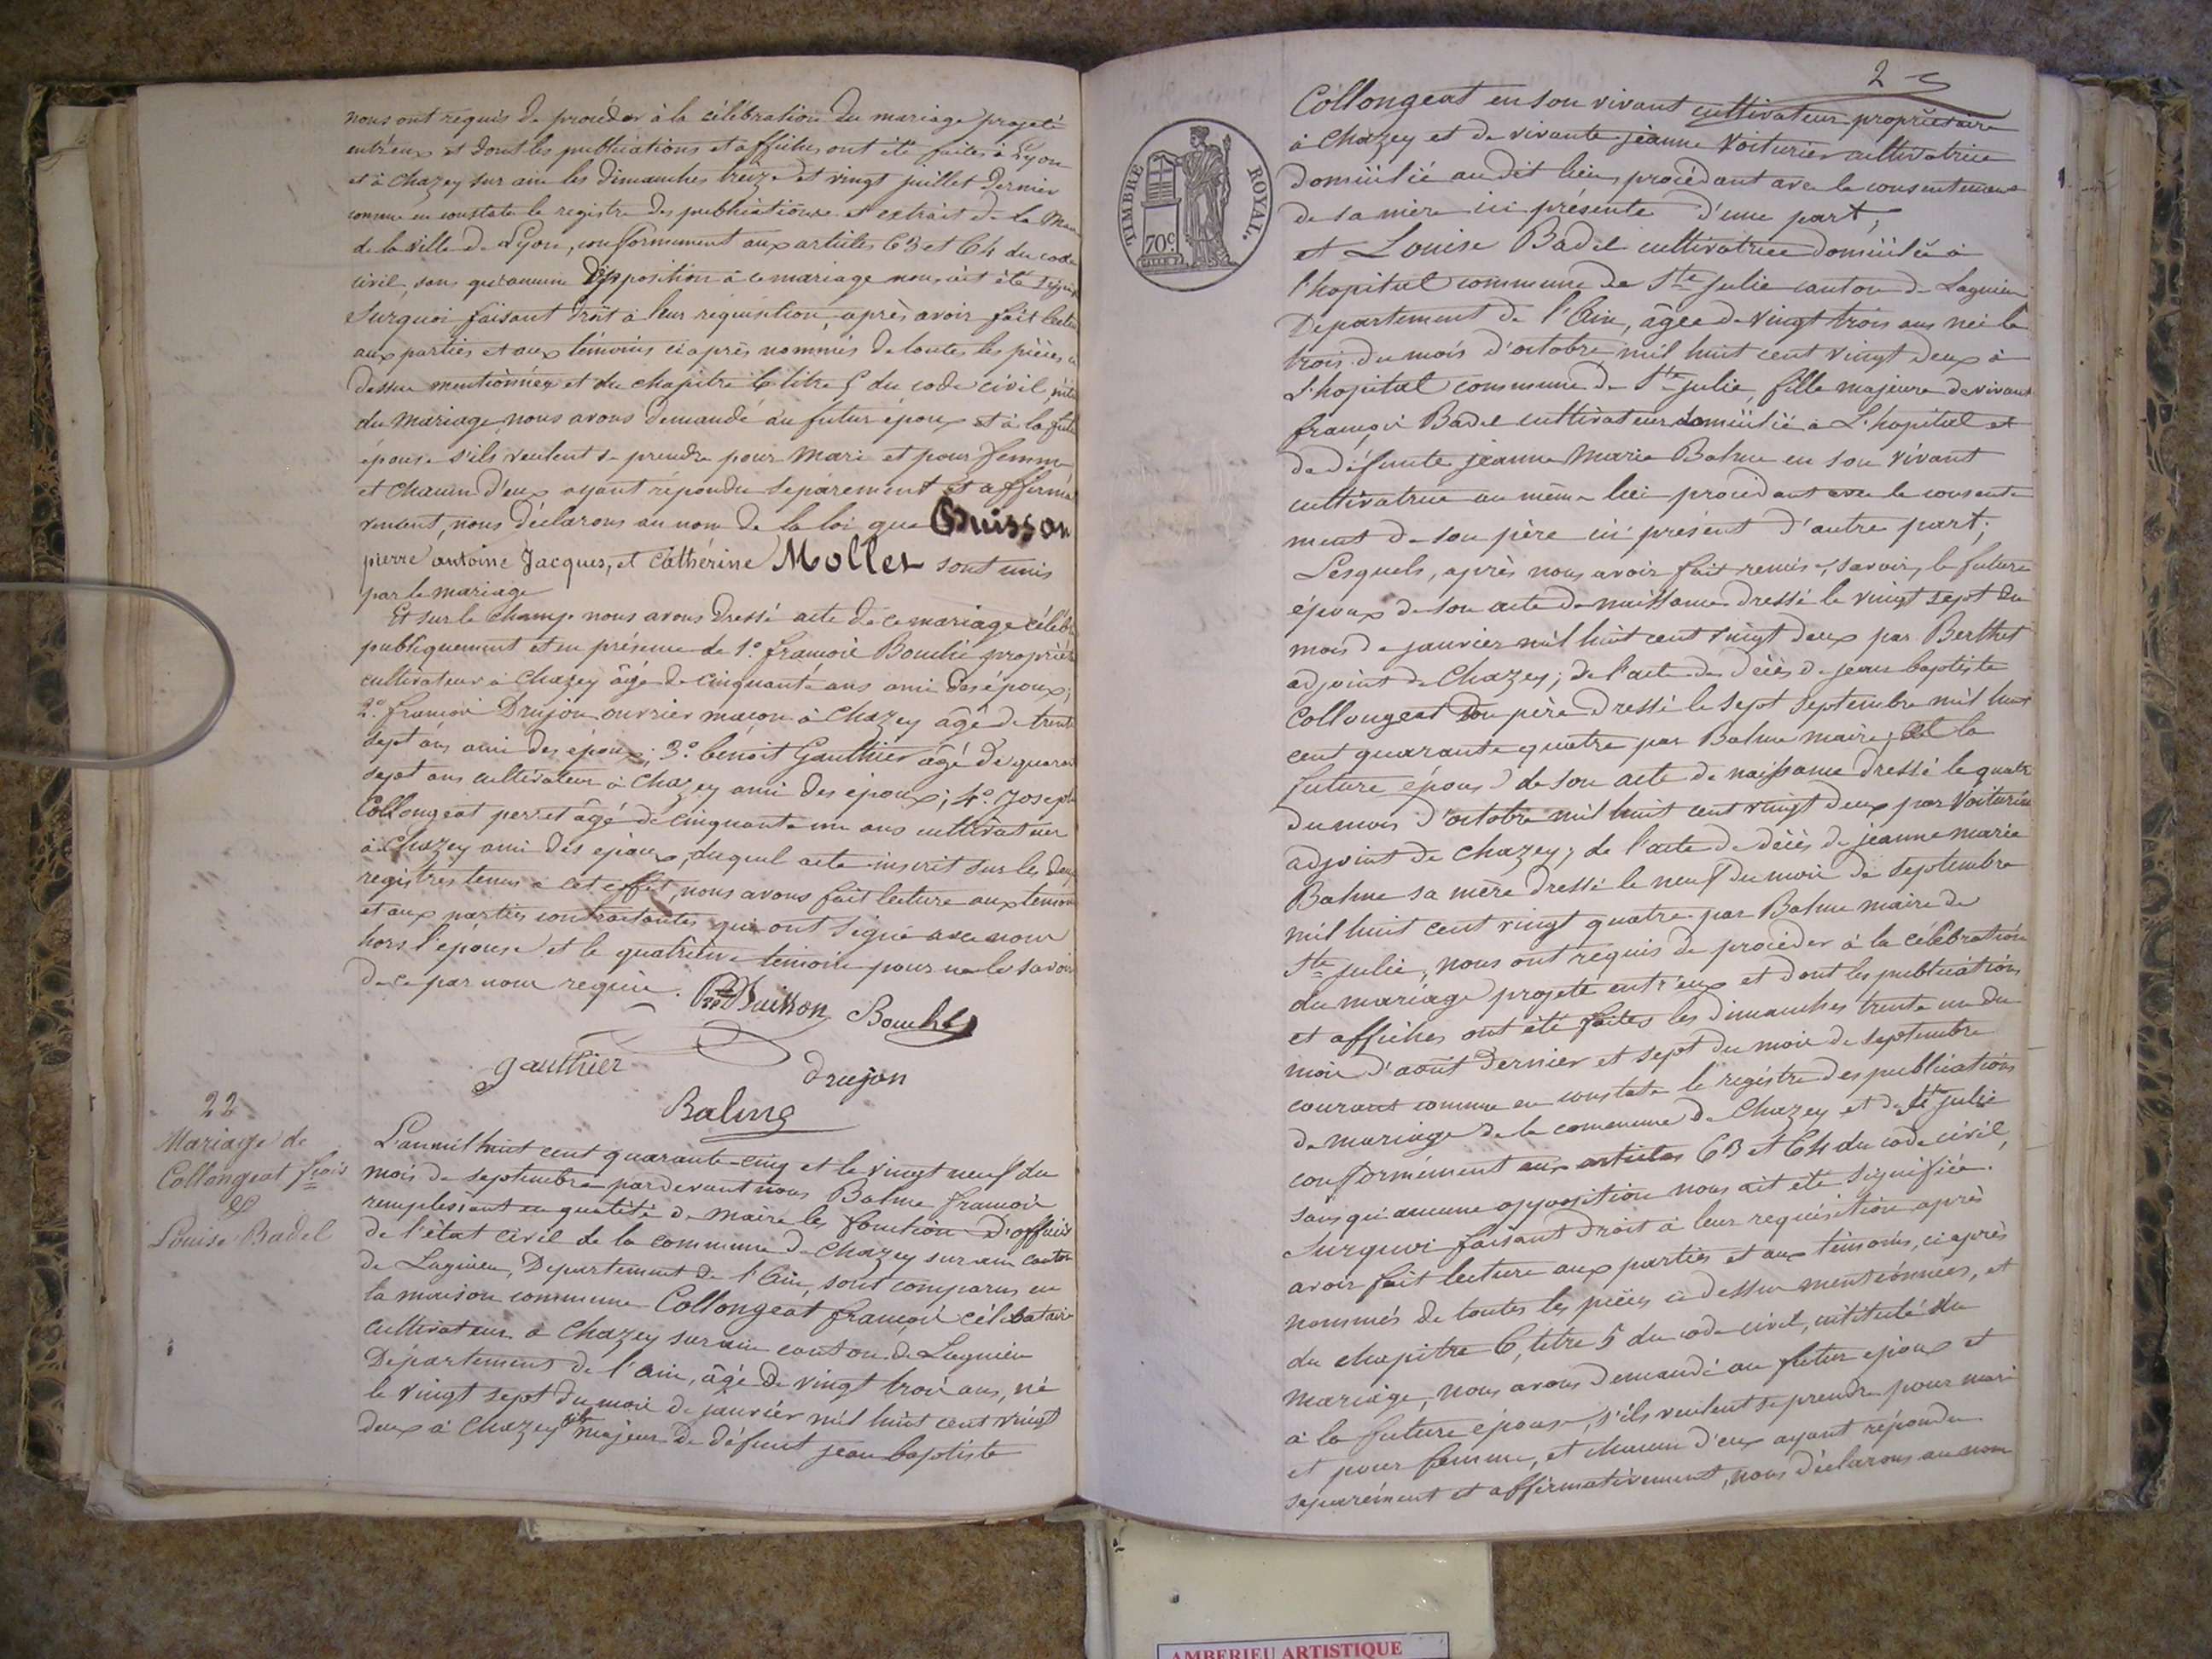 nous ont requis de procéder à la célébration du mariage projeté
entr'eux et dont les publications et affiches ont été faites à Lyon
et à Chazey sur ain les dimanches treize et vingt juillet dernier
comme en constate le registre des publications et extrait de la
de la ville de Lyon, conformément aux articles 63 et 64 du code
civil, sans qu'aucune opposition à ce mariage nous ait été
Surquoi faisant droit à leur réquisition, après avoir fait lecture
aux parties et aux témoins ci après nommés de toutes les pièces ci
dessus mentionnées et du chapitre 6 titre 5 du code civil,
du mariage, nous avons demandé au futur époux et à la future
épouse s'ils veulent se prendre pour mari et pour femme
et chacun d'eux ayant répondu séparément et affirma
vement, nous déclarons au nom de la loi que Buisson
pierre antoine Jacques, et Cathérine Mollet sont unis
par le mariage
Et sur le champ nous avons dressé acte de ce mariage célébré
publiquement et en présence de 1.º françois Bouché propriét
cultivateur à Chazey âgé de cinquante ans ami des époux;
2.º françois Drujon ouvrier maçon à Chazey âgé de trente
sept ans ami des époux; 3.º benoit Gauthier âgé de quarante
sept ans cultivateur à Chazey ami des époux; 4.º Joseph
Collongeat perret âgé de cinquante un ans cultivateur
à Chazey ami des époux, duquel acte inscrit sur les deux
registres tenus à cet effet, nous avons fait lecture aux témoins
et aux parties contractantes qui ont signé avec nous
hors l'épouse et le quatrième témoin pour ne le savoir
de ce par nous requis.
Buisson Bouché
gauthier drujon
Balme
22
Mariage de
Collongeat f.çois
&
Louise Badel
L'an mil huit cent quarante-cinq et le vingt neuf du
mois de septembre pardevant nous Balme françois
remplissant en qualité de maire les fonction d'officier
de l'état civil de la commune de Chazey sur ain canton
de Lagnieu, Département de l'Ain, sont comparus en
la maison commune Collongeat françois célibataire
cultivateur à Chazey sur ain canton de Lagnieu
Département de l'ain, âgé de vingt trois ans, né
le vingt sept du mois de janvier mil huit cent vingt
deux à Chazey fils majeur de défunt jean baptiste
2
TIMBRE ROYAL.
70c
Collongeat en son vivant cultivateur propriétaire
à Chazey et de vivante jeanne Voiturier cultivatrice
domicilié audit lieu, procédant avec le consentement
de sa mère ici présente d'une part,
et Louise Badel cultivatrice domicilié à
l'hopital commune de Ste julie canton de Lagnieu
Département de l'Ain, âgée de vingt trois ans née le
trois du mois d'octobre mil huit cent vingt deux à
L'hopital commune de Ste julie, fille majeure de vivant
françois Badel cultivateur domicilié à L'hopital et
de défunte jeanne Marie Balme en son vivant
cultivatrice au même lieu procédant avec le consente
ment de son père ici présent d'autre part;
Lesquels, après nous avoir fait remis, savoir, le future
époux de son acte de naissance dressé le vingt sept du
mois de janvier mil huit cent vingt deux par Berthet
adjoint de Chazey; de l'acte de décès de jean baptiste
Collongeat son père dressé le sept septembre mil huit
cent quarante quatre par Balme maire; et la
future épouse de son acte de naissance dressé le quatre
du mois d'octobre mil huit cent vingt deux par Voiturier
adjoint de Chazey; de l'acte de décès de jeanne marie
Balme sa mère dressé le neuf du mois de septembre
mil huit cent vingt quatre par Balme maire de
Ste julie, nous ont requis de procéder à la célébration
du mariage projeté entr'eux et dont les publications
et affiches ont été faites les dimanches trente un du
mois d'août dernier et sept du mois de septembre
courant comme en constate le registre des publications
de mariage de la commune de Chazey et de Ste julie
conformément aux articles 63 et 64 du code civil,
sans qu'aucune opposition nous ait été signifiée.
Surquoi faisant droit à leur réquisition après
avoir fait lecture aux parties et aux témoins, ci après
nommés de toutes les pièces ci dessus mentionnées, et
du chapitre 6, titre 5 du code civil, intitulé du
Mariage, nous avons demandé au futur époux et
à la future épouse, s'ils veulent se prendre pour mari
et pour femme, et chacun d'eux ayant répondu
séparément et affirmativement, nous déclarons au nom
AMBERIEU ARTISTIQUE